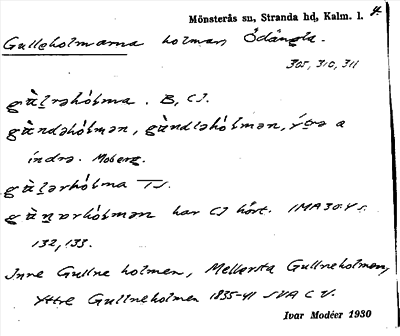 Mönsterås sn, Stranda hd, Kalm. l. 4.
Gulleholmarna holmar, Ödängla.
305, 310, 311
gùl̥rəhólma. B, CJ.
gùndəhólmən, gùndləhólmən, ýtrə a
índrə. Moberg.
gùl̥ərhólma TJ.
gùn̥ərhólmən har CJ hört. IMA
132, 133.
Inre Gullneholmen, Mellersta Gullneholmen,
Yttre Gullneholmen 1835-41 SVA C V.
Ivar Modéer 1930